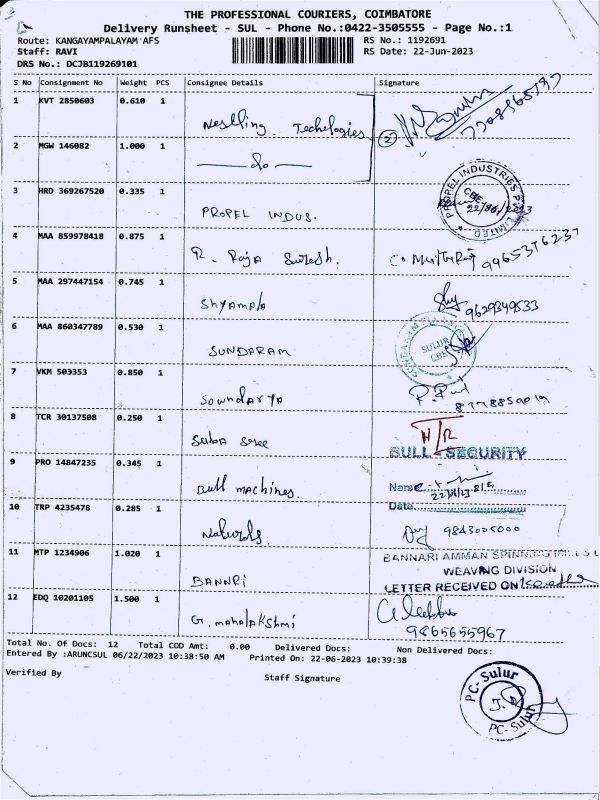 THE PROFESSIONAL COURIERS, COIMBATORE
Delivery Runsheet - SUL - Phone No.:0422-3505555 - Page No.:1
Route: KANGAYAMPALAYAM AFS
RS No.: 1192691
Staff: RAVI
RS Date: 22-Jun-2023
DRS No.: DCJB119269101
S No Consignment No Weight PCS Consignee Details Signature
1 KVT 2850603 0.610 1
Nestling Techelogies
2 MGW 146082 1.000 1
do
3 HRD 369267520 0.335 1
PROPEL INDUSTRIES LIMITED
CBE
22/06/2023
PROPEL INDUS.
4 MAA 859978418 0.875 1
R. Raja Suresh.
5 MAA 297447154 0.745 1
Shyamala
9629349533
6 MAA 860347789 0.530 1
SULUR
CBE
SUNDARAM
7 VKM 503353 0.850 1
Sowndarya
8 TCR 30137508 0.250 1
N/R
Suba Sree
BULL SECURITY
9 PRO 14847235 0.345 1
Name
Bull machines.
Date
10 TRP 4235478 0.285 1
Naturals
9843005000
11 MTP 1234906 1.020 1
BANNARI AMMAN SPINNING MILLS
WEAVING DIVISION
BANNRI
LETTER RECEIVED ON
12 EDQ 10201105 1.500 1
G. mahalakshmi
9865655967
Total No. Of Docs: 12 Total COD Amt: 0.00 Delivered Docs: Non Delivered Docs:
Entered By :ARUNCSUL 06/22/2023 10:38:50 AM Printed On: 22-06-2023 10:39:38
Verified By
Staff Signature
PC-Sulur
PC-Sulur